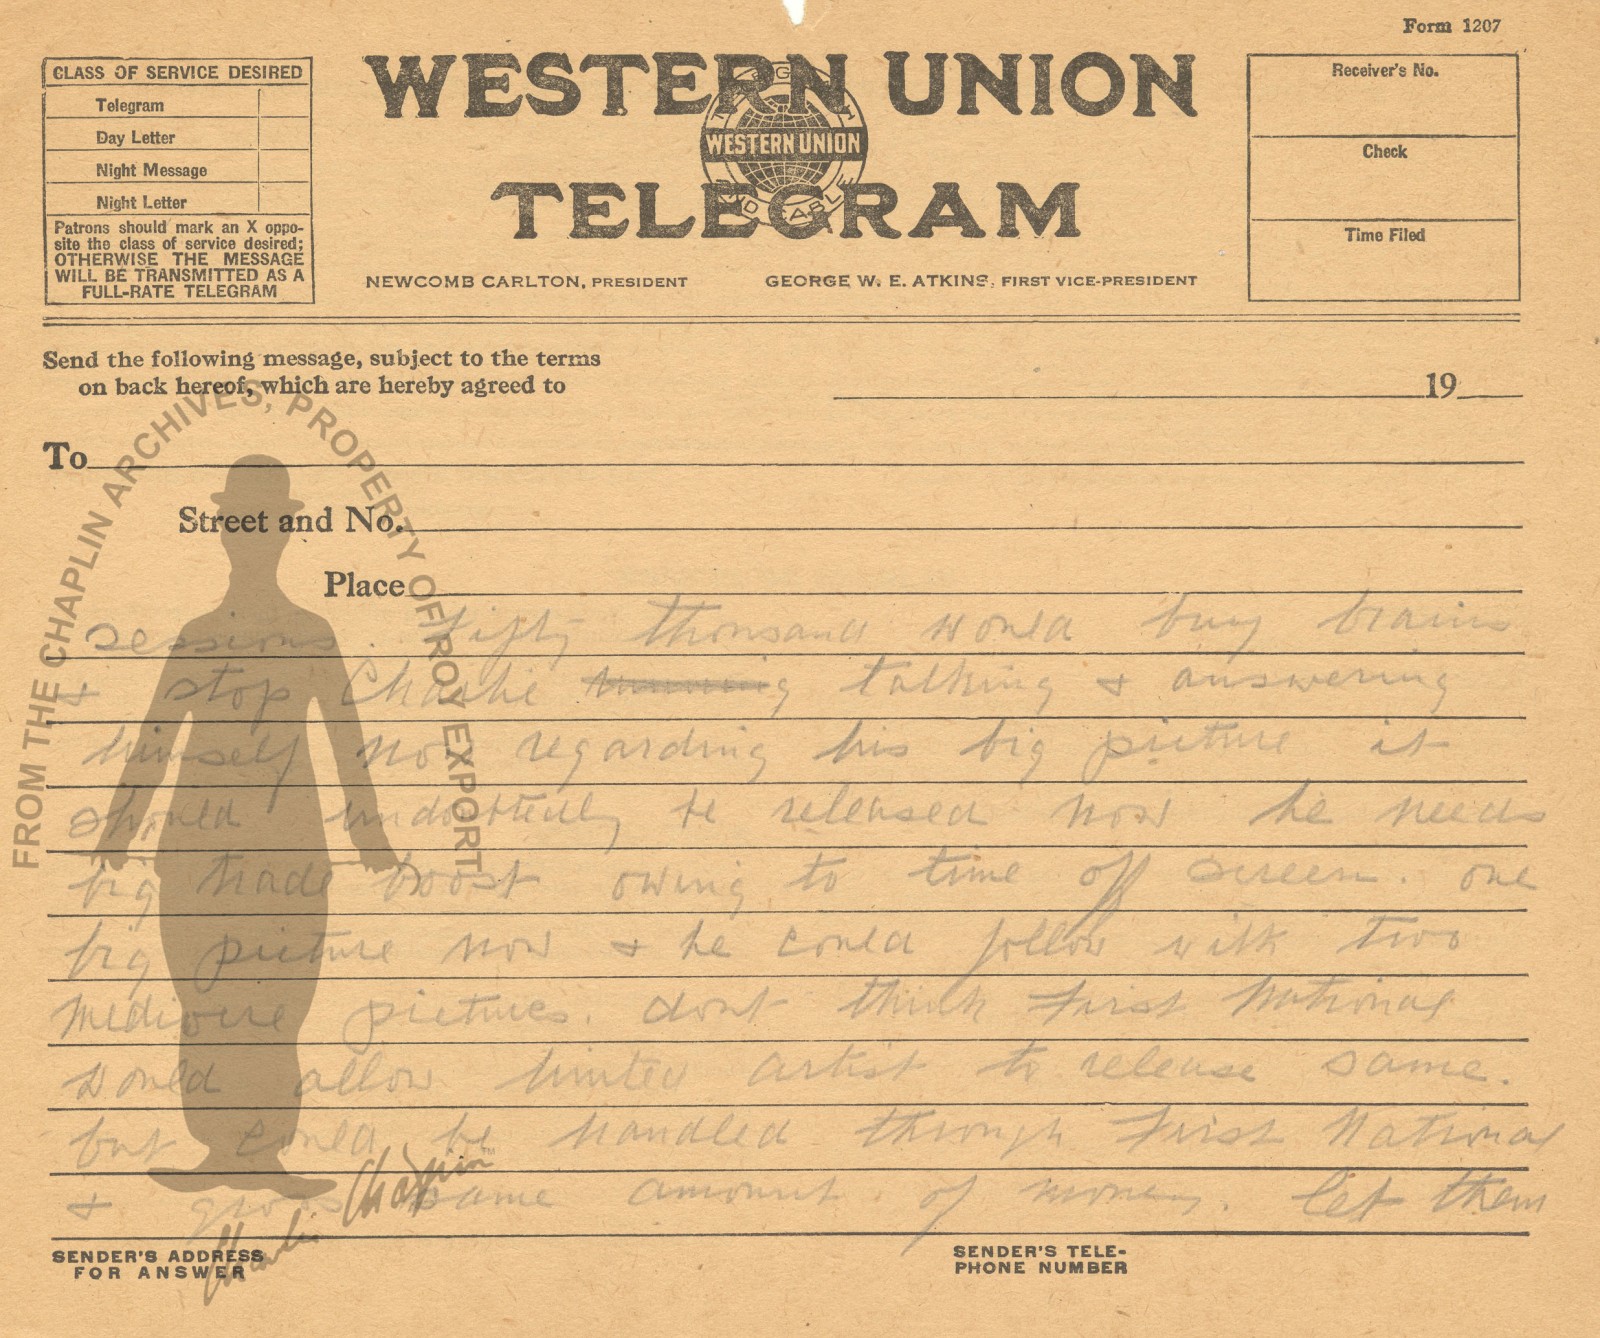 Form 1207
CLASS OF SERVICE DESIRED
Telegram
Day Letter
Night Message
Night Letter
Patrons should mark an X oppo-
site the class of service desired;
OTHERWISE THE MESSAGE
WILL BE TRANSMITTED AS A
FULL-RATE TELEGRAM
WESTERN UNION
WESTERN UNION
TELEGRAM
NEWCOMB CARLTON, PRESIDENT
GEORGE W. E. ATKINS, FIRST VICE-PRESIDENT
Receiver's No.
Check
Time Filed
Send the following message, subject to the terms
on back hereof, which are hereby agreed to
19
To
Street and No.
Place
sessions. fifty thousand would buy brains
& stop Charlie talking & answering
himself now regarding his big picture it
should undoubtedly be released now he needs
big trade boost owing to time off screen. one
big picture now & he could follow with two
mediocre pictures. dont think First National
would allow united artist to release same.
but could be handled through First National
& gross same amount of money. let them
SENDER'S ADDRESS
FOR ANSWER
SENDER'S TELE-
PHONE NUMBER
FROM THE CHAPLIN ARCHIVES, PROPERTY OF ROY EXPORT
Charlie Chaplin™